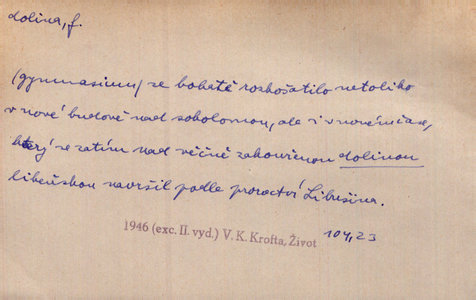 dolina, f.
(gymnasium) se bohatě rozkošatilo netoliko
v nové budově nad sokolovnou, ale i v novém čase,
který se zatím nad věčně zakouřenou dolinou
libeňskou navršil podle proroctví Libušina.
1946 (exc. II. vyd.) V. K. Krofta, Život 104,23